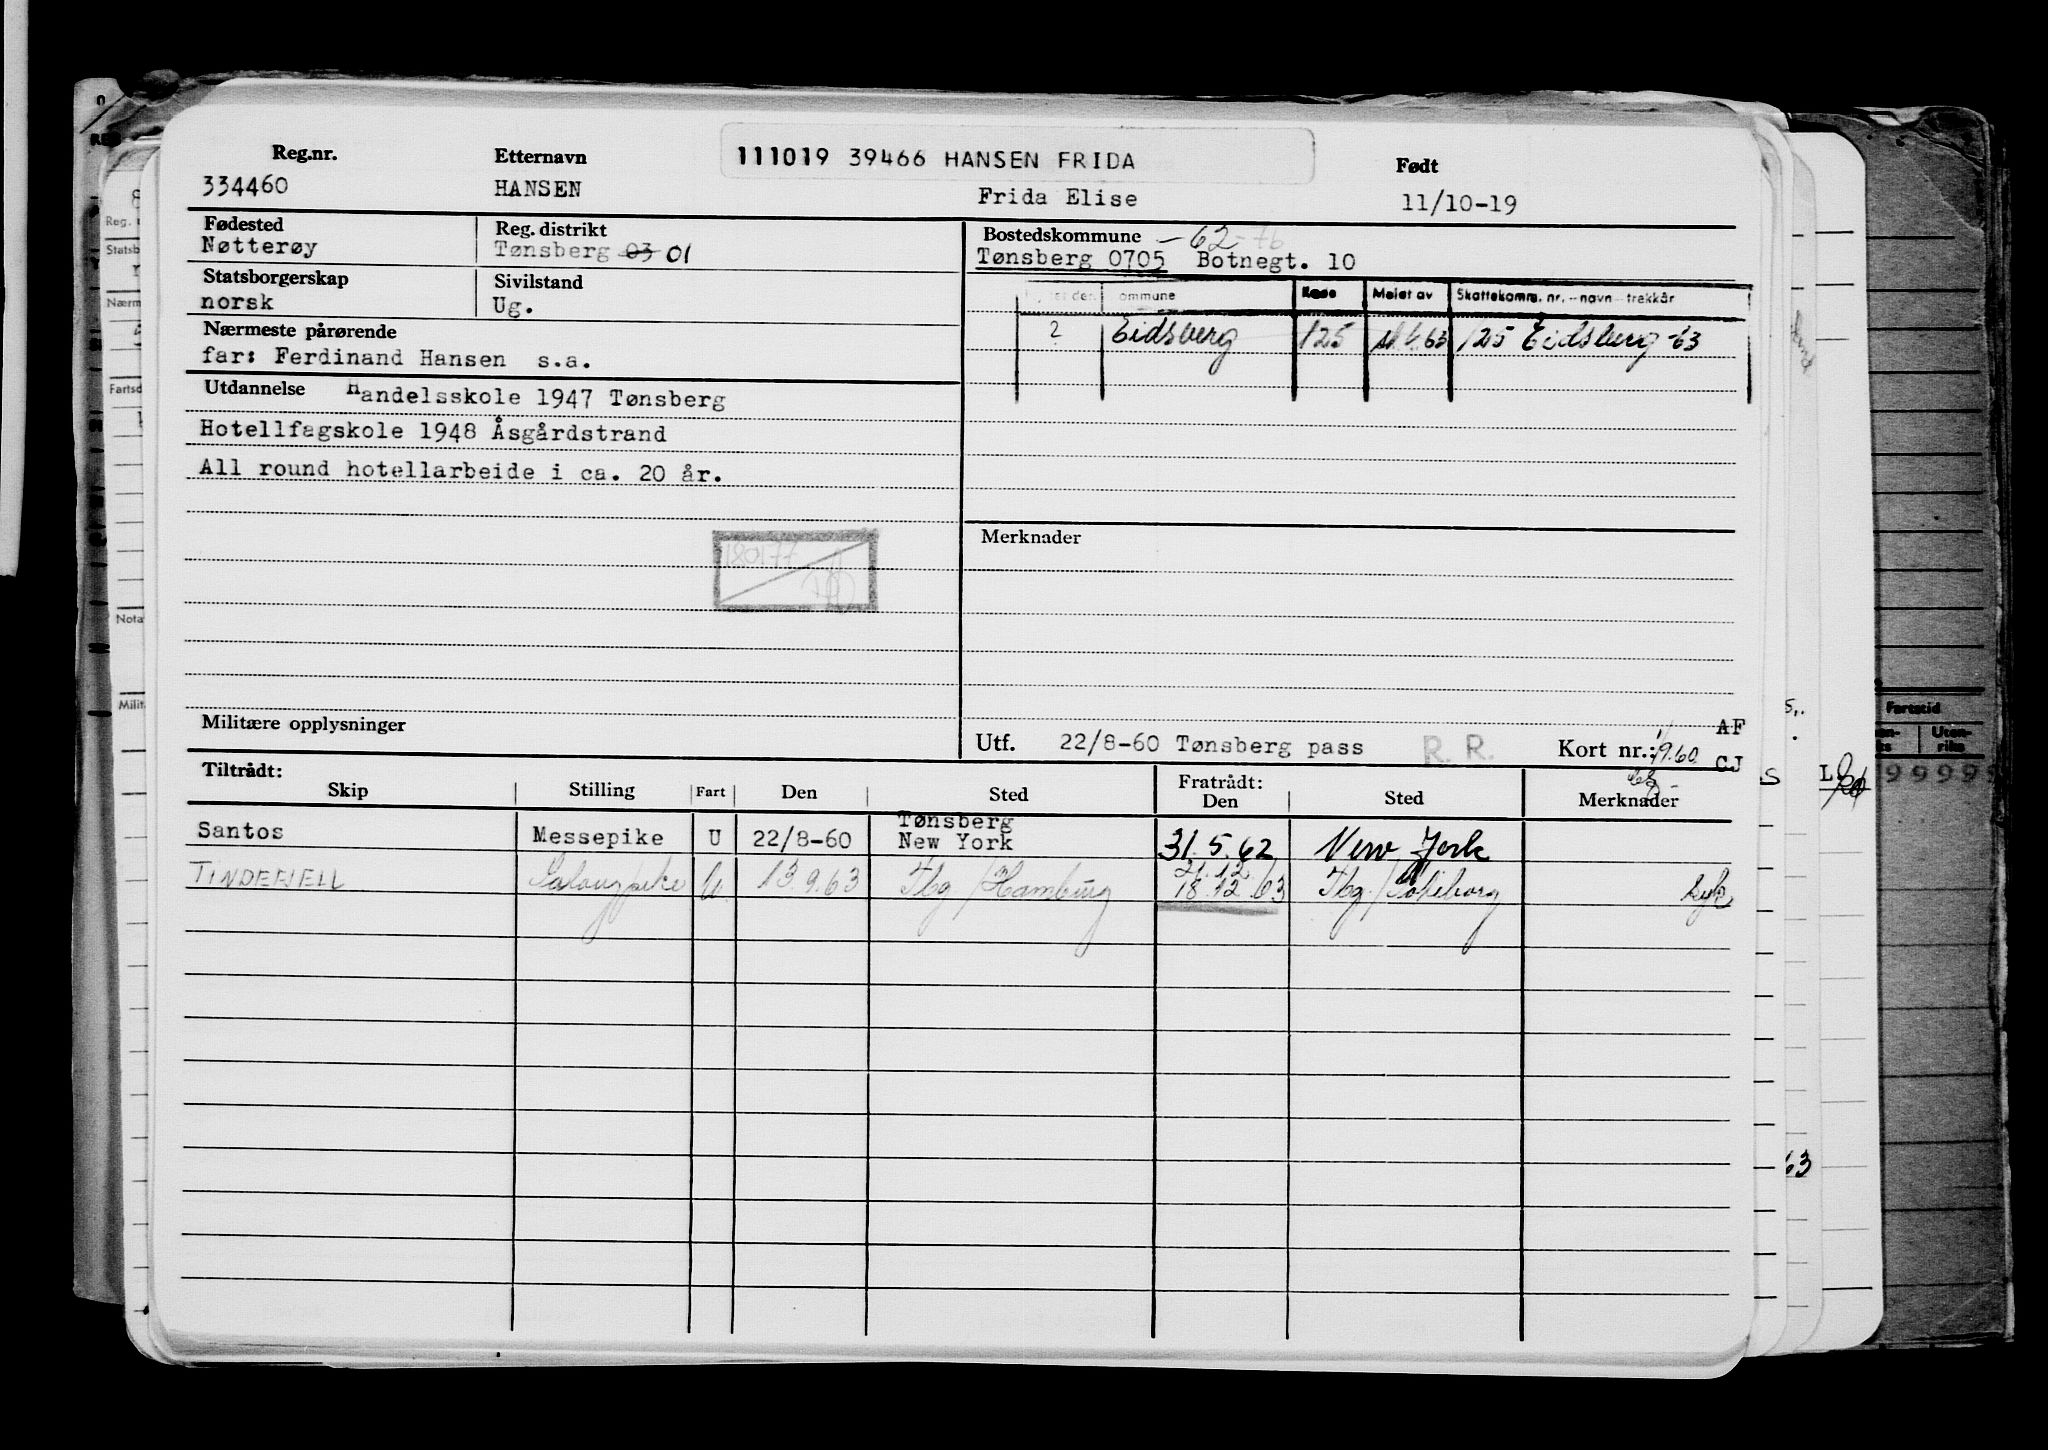 111019 39466 HANSEN FRIDA
Reg.nr. Etternavn Født
334460 HANSEN Frida Elise 11/10-19
Fødested Reg. distrikt Bostedskommune -62-76
Nøtterøy Tønsberg 03 01 Tønsberg 0705 Botnegt. 10
Statsborgerskap Sivilstand
norsk Ug.
ommune Kode Meldt av Skattekomm. nr. - navn - trekkår
2 Eidsberg 125 63 125 Eidsberg -63
Nærmeste pårørende
far: Ferdinand Hansen s.a.
Utdannelse Handelsskole 1947 Tønsberg
Hotellfagskole 1948 Åsgårdstrand
All round hotellarbeide i ca. 20 år.
180177
Merknader
Militære opplysninger
Utf. 22/8-60 Tønsberg pass R. R. Kort nr.: 9.60 AF
CJ
Tiltrådt: Fratrådt:
Skip Stilling Fart Den Sted Den Sted Merknader
Santos Messepike U 22/8-60 Tønsberg
New York 31.5.62 New York
TINDEFJELL Salongpike U 13.9.63 Tbg/Hamburg 21.12
18.12.63 Tbg/Göteborg syk
Reg.
Statsb
Nærm
Fartsd
Nota
Milit
Fartstid
Uten-
riks
9999
63